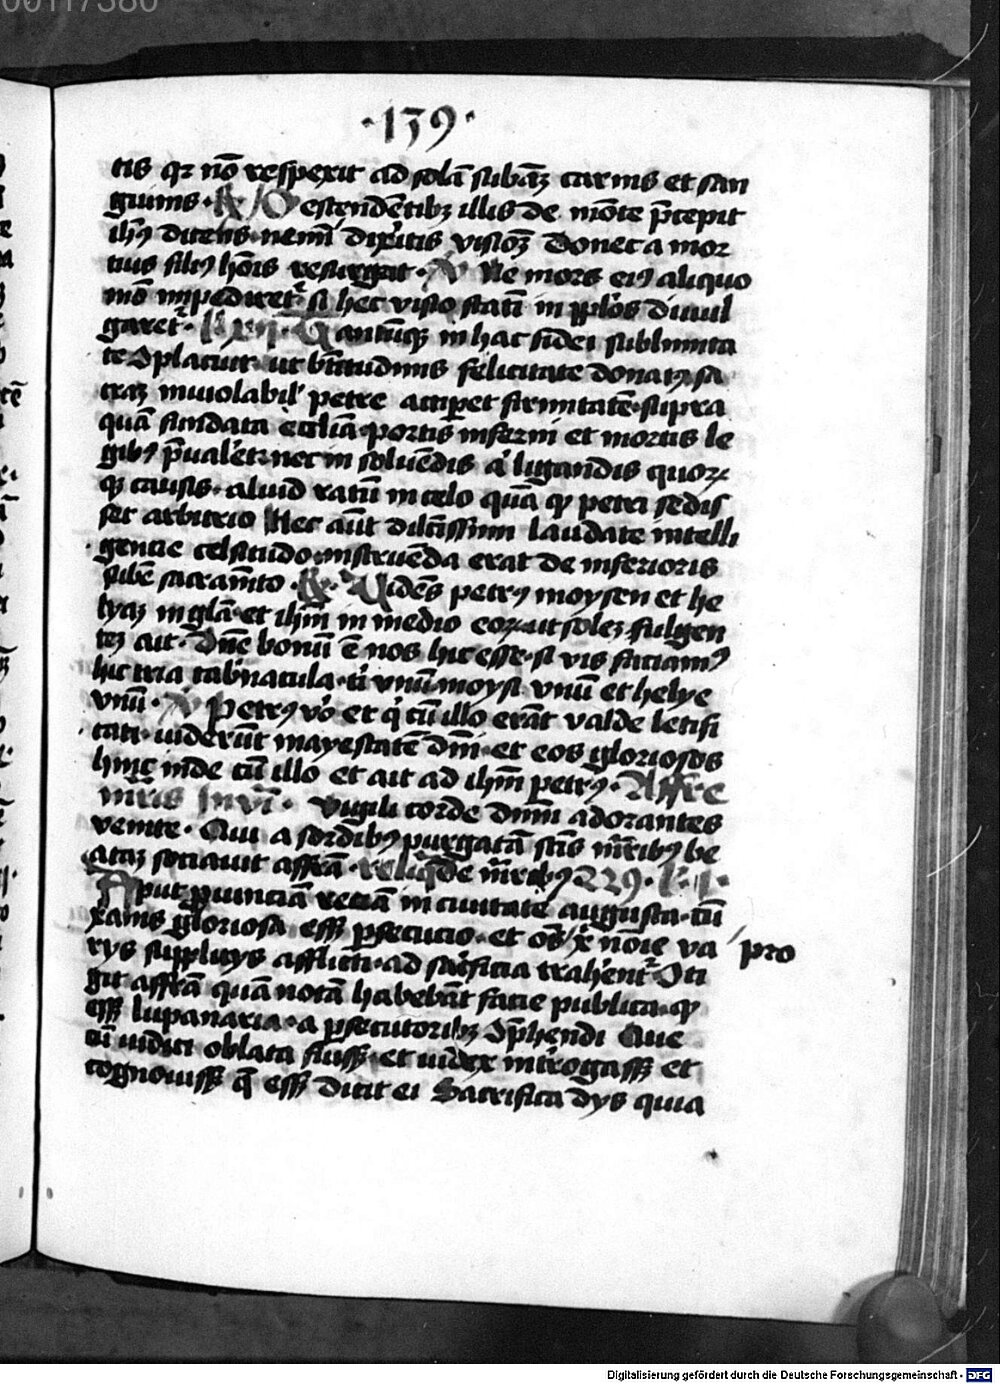 00117380
·139·
tis qꝛ nō respexit ad solā subāꝫ carnis et san
guinis · ℟ Descendētibꝫ illis de mōte p̄cepit
ihꝰ dicens nemī dixitis visioꝫ donec a mor
tuis filiꝰ hōis resurgat · ℣ Ne mors eiꝰ aliquo
mō impediretᷣ si hec visio statī in pplōs divul
garetᷣ · In hac fidei sublimita
te placuit ut btītudinis felicitate donatꝰ sa
craꝫ inviolabil' petre acciperet firmitatē supra
quā fundata eccliā portis inferni et mortis le
gibꝰ p̄valet nec in solvēdis aut ligandis quorꝫ
qꝫ causis aliud ratū in celo quā qd petri sedis
set arbitrio Hec aūt dilc̄issimi laudate intelli
gentie celsitudo instruēda erat de inferioris
sube sacramēto · ℟ · Vidēs petrꝰ moysen et he
lyaꝫ in glā et ihm in medio eoꝝ ut soleꝫ fulgen
teꝫ ait · Dne bonū ē nos hic esse si vis faciamꝰ
hic tria tabnacula tī vnū moysi vnū et helye
vnū · ℣ Petrꝰ vo et q̇ cū illo erāt valde letifi
cati viderūt mayestatē dnī et eos gloriosos
hinc inde cū illo et ait ad ihm petrꝰ · Affre
mr̄is Invi · Vigili corde dnm adorantes
venite · Qui a sordibꝰ purgatā scīs mr̄ibꝰ be
ataꝫ sociavit affrā · reliq̄ de mr̄ibꝰ 229 ·
Aput pvinciā reciā in civitate augusta cū
xānis gloriosa essꝫ psecucio et oēs xi nōie va
pro
rys supplicys afflicti ad sacrificia trahentᷣ Cōti
git affrā quā notā habebāt facie publica qd
essꝫ lupanaria a psecutoribꝫ cōphendi Que
cū iudici oblata fuissꝫ et iudex introgassꝫ et
cognovissꝫ q̄ essꝫ dicit ei Sacrifica dys quia
Digitalisierung gefördert durch die Deutsche Forschungsgemeinschaft - DFG